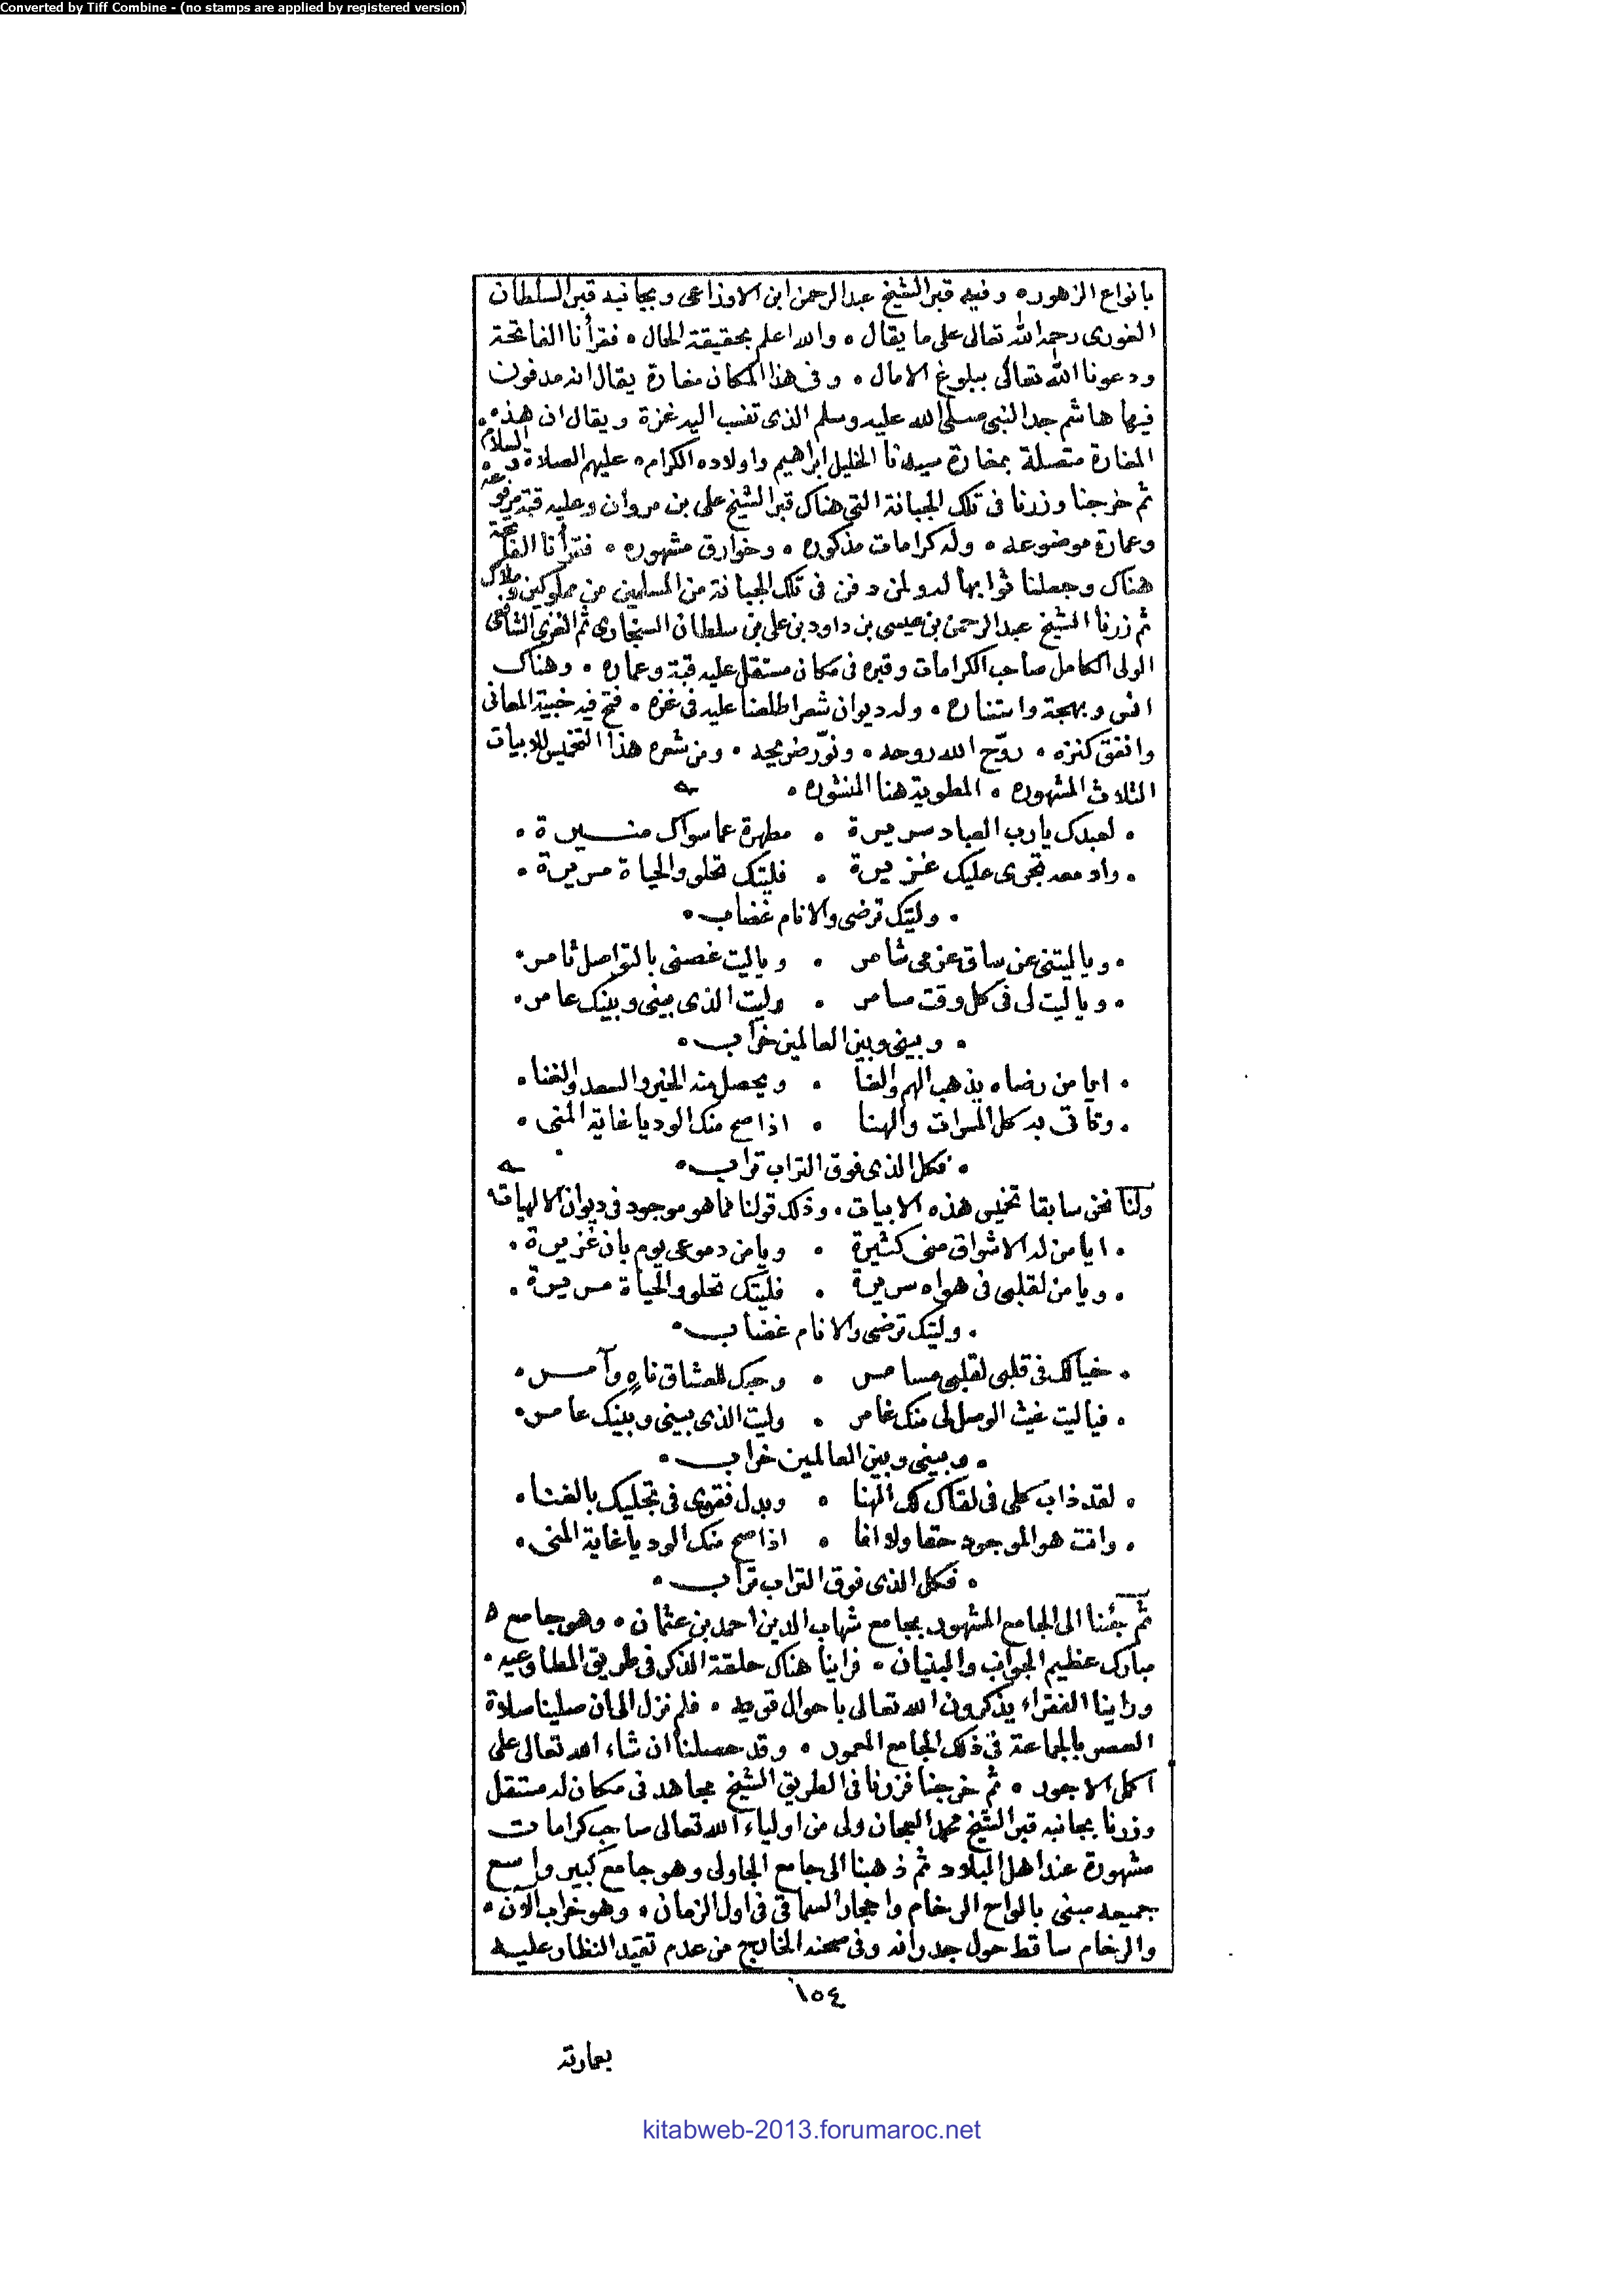 Converted by Tiff Combine - (no stamps are applied by registered version)
بانواع الزهوره وفيه قبر الشيخ عبد الرحمن ابن الاوزاعى وبجانبه قبر السلطان
الغورى رحمه الله تعالى على ما يقال ٠ والله اعلم بحقيقة الحال ٠ فقرأنا الفاتحة
ودعونا الله تعالى ببلوغ الامال ٠ وفى هذا المكان مغارة يقال انه مدفون
فيها هاشم جد النبى صلى الله عليه وسلم الذى تنسب اليه غزة ويقال ان هذه
المغارة متصلة بمغارة سيدنا الخليل ابراهيم واولاده الكرام ٠ عليهم الصلاة والسلام
ثم خرجنا وزرنا فى تلك الجبانة التى هناك قبر الشيخ على بن مروان وعليه قبة مرفوعة
وعمارة موضوعه ٠ وله كرامات مذكوره ٠ وخوارق مشهوره ٠ فقرأنا الفاتحة
هناك وجعلنا ثوابها له ولمن دفن فى تلك الجبانة من المسلمين من مملوكين وملاك
ثم زرنا الشيخ عبد الرحمن بن عيسى بن داود بن على بن سلطان السنجارى ثم الغزى الشافعى
الولى الكامل صاحب الكرامات وقبره فى مكان مستقل عليه قبة وعماره ٠ وهناك
انس وبهجة واستناره ٠ وله ديوان شعر اطلعنا عليه فى غزه ٠ فتح فيه خبية المعانى
وانفق كنزه ٠ روّح الله روحه ٠ ونوّر ضريحه ٠ ومن شعره هذا التخميس للابيات
الثلاث المشهوره ٠ المطوية هنا المنشوره ٠
٠ لعبدك يا رب العباد سريرة ٠ مطهرة عما سواك منيرة ٠
٠ وادمعه تجرى عليك غزيرة ٠ فليتك تحلو والحياة مريرة ٠
٠ وليتك ترضى والانام غضاب ٠
٠ ويا ليتنى عن ساق عزمى شامر ٠ ويا ليت غصنى بالتواصل ثامر ٠
٠ ويا ليت لى فى كل وقت مسامر ٠ وليت الذى بينى وبينك عامر ٠
٠ وبينى وبين العالمين خراب ٠
٠ ايا من رضاه يذهب الهم والعنا ٠ ويحصل منه الخير والسعد والغنا ٠
٠ وتاتى به كل المسرات والهنا ٠ اذا صح منك الود يا غاية المنى ٠
٠ فكل الذى فوق التراب تراب ٠
ولنا نحن سابقا تخميس هذه الابيات ٠ وذلك قولنا مما هو موجود فى ديوان الالهيات
٠ ايا من له الاشواق منى كثيرة ٠ ويا من دموعى يوم بان غزيرة ٠
٠ ويا من لقلبى فى هواه سريرة ٠ فليتك تحلو والحياة مريرة ٠
٠ وليتك ترضى والانام غضاب ٠
٠ خيالك فى قلبى لقلبى مسامر ٠ وحبك للعشاق ناهٍ وآمر ٠
٠ فيا ليت غيث الوصل لى منك غامر ٠ وليت الذى بينى وبينك عامر ٠
٠ وبينى وبين العالمين خراب ٠
٠ لقد ذاب كلى فى لقاك لك الهنا ٠ وبدل فقرى فى تجليك بالغنا ٠
٠ وانت هو الموجود حقا ولا انا ٠ اذا صح منك الود يا غاية المنى ٠
٠ فكل الذى فوق التراب تراب ٠
ثم جئنا الى الجامع المشهور بجامع شهاب الدين احمد بن عثمان ٠ وهو جامع
مبارك عظيم الجوانب والبنيان ٠ فراينا هناك حلقة الذكر فى طريق المطاوعيه ٠
وراينا الفقراء يذكرون الله تعالى باحوال قويه ٠ فلم نزل الى ان صلينا صلاة
العصر بالجماعة فى ذلك الجامع المعمور ٠ وقد حصلنا ان شاء الله تعالى على
اكمل الاجور ٠ ثم خرجنا فزرنا فى الطريق الشيخ مجاهد فى مكان له مستقل
وزرنا بجانبه قبر الشيخ محمد العجان ولى من اولياء الله تعالى صاحب كرامات
مشهورة عند اهل البلاد ثم ذهبنا الى جامع الجاولى وهو جامع كبير واسع
جميعه مبنى بالواح الرخام واحجار السماقى فى اول الزمان ٠ وهو خراب الآن ٠
والرخام ساقط حول جدرانه وفى صحنه الخارج من عدم تقيد النظار عليه
١٥٤
بعمارته
kitabweb-2013.forumaroc.net